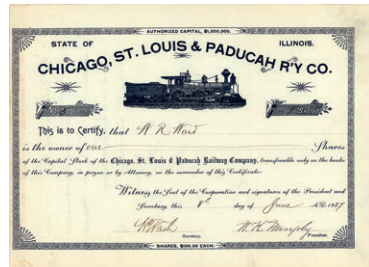 AUTHORIZED CAPITAL, $1,000,000.
STATE OF ILLINOIS.
CHICAGO, ST. LOUIS & PADUCAH R'Y CO.
This is to Certify, that W R Ward
is the owner of one Shares
of the Capital Stock of the Chicago, St. Louis & Paducah Railway Company, transferable only on the books
of this Company, in person or by Attorney, on the surrender of this Certificate.
Witness the Seal of the Corporation and signatures of the President and
Secretary, this 8th day of June A.D. 1887
W. K. Murphy
Secretary. President.
SHARES, $100.00 EACH.